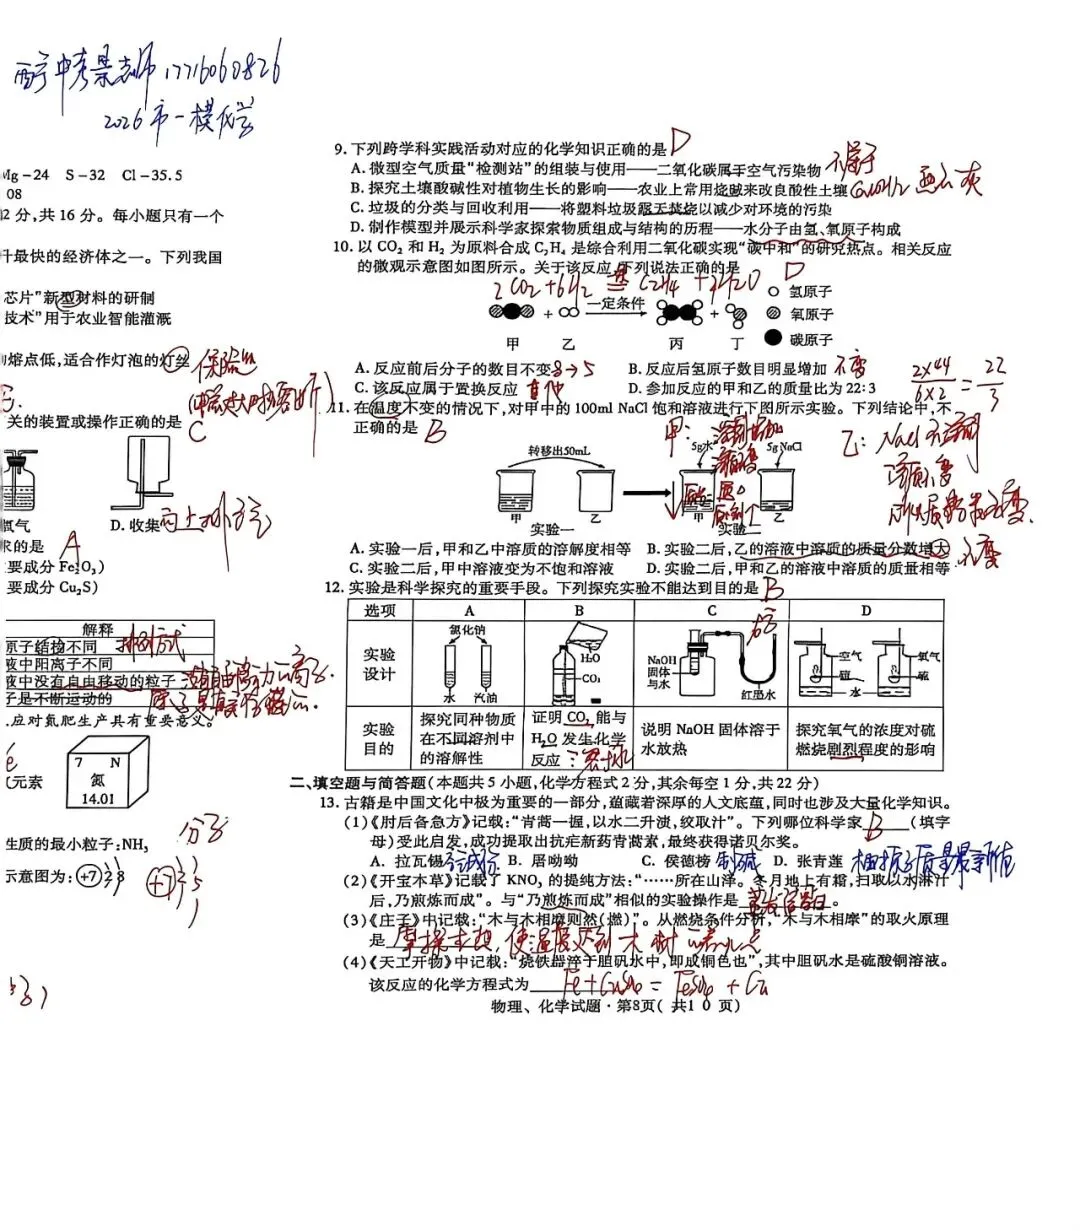 西宁中考景老师17716060826
2026市一模化学
Mg-24 S-32 Cl-35.5
08
2分,共16分。每小题只有一个
升最快的经济体之一。下列我国
芯片”新型材料的研制
技术”用于农业智能灌溉
熔点低,适合作灯泡的灯丝 保险丝
关的装置或操作正确的是
C
氧气
D. 收集 向上排空气
求的是 A
要成分 Fe₂O₃)
要成分 Cu₂S)
解释
原子结构不同 排列方式
液中阳离子不同
液中没有自由移动的粒子
子是不断运动的
应对氮肥生产具有重要意义。
元素
7 N
氮
14.01
分子
性质的最小粒子:NH₃
示意图为: +7 2 8
+7 2 5
9. 下列跨学科实践活动对应的化学知识正确的是 D
A. 微型空气质量“检测站”的组装与使用——二氧化碳属于空气污染物 不属于
B. 探究土壤酸碱性对植物生长的影响——农业上常用烧碱来改良酸性土壤 Ca(OH)₂ 熟石灰
C. 垃圾的分类与回收利用——将塑料垃圾露天焚烧以减少对环境的污染
D. 制作模型并展示科学家探索物质组成与结构的历程——水分子由氢、氧原子构成
10. 以 CO₂ 和 H₂ 为原料合成 C₂H₄ 是综合利用二氧化碳实现“碳中和”的研究热点。相关反应
的微观示意图如图所示。关于该反应,下列说法正确的是 D
2CO₂+6H₂ C₂H₄+4H₂O
一定条件
氢原子
氧原子
碳原子
甲 乙 丙 丁
A. 反应前后分子的数目不变 8→5 B. 反应后氢原子数目明显增加 不变
C. 该反应属于置换反应 其他 D. 参加反应的甲和乙的质量比为 22:3
2×44/6×2=22/3
11. 在温度不变的情况下,对甲中的 100ml NaCl 饱和溶液进行下图所示实验。下列结论中,不
正确的是 B
甲: 溶剂增加
乙: NaCl不溶解
溶质不变
转移出50mL
5g水 5gNaCl
甲 乙 甲 乙
实验一 实验二
A. 实验一后,甲和乙中溶质的溶解度相等 B. 实验二后,乙的溶液中溶质的质量分数增大 不变
C. 实验二后,甲中溶液变为不饱和溶液 D. 实验二后,甲和乙的溶液中溶质的质量相等
12. 实验是科学探究的重要手段。下列探究实验不能达到目的是 B
选项 A B C D
实验设计
氯化钠
水 汽油
H₂O
CO₂
NaOH固体与水
红墨水
空气 氧气
硫 硫
水
实验目的
探究同种物质在不同溶剂中的溶解性
证明 CO₂ 能与 H₂O 发生化学反应 溶于水
说明 NaOH 固体溶于水放热
探究氧气的浓度对硫燃烧剧烈程度的影响
二、填空题与简答题(本题共 5 小题,化学方程式 2 分,其余每空 1 分,共 22 分)
13. 古籍是中国文化中极为重要的一部分,蕴藏着深厚的人文底蕴,同时也涉及大量化学知识。
(1)《肘后备急方》记载:“青蒿一握,以水二升渍,绞取汁”。下列哪位科学家 B (填字
母)受此启发,成功提取出抗疟新药青蒿素,最终获得诺贝尔奖。
A. 拉瓦锡 B. 屠呦呦 C. 侯德榜 制碱 D. 张青莲 相对原子质量
(2)《开宝本草》记载了 KNO₃ 的提纯方法:“……所在山泽。冬月地上有霜,扫取以水淋汁
后,乃煎炼而成”。与“乃煎炼而成”相似的实验操作是 蒸发结晶。
(3)《庄子》中记载:“木与木相摩则然(燃)”。从燃烧条件分析,“木与木相摩”的取火原理
是 摩擦生热,使温度达到木材的着火点
(4)《天工开物》中记载:“烧铁器淬于胆矾水中,即成铜色也”,其中胆矾水是硫酸铜溶液。
该反应的化学方程式为 Fe+CuSO₄=FeSO₄+Cu
物理、化学试题·第8页( 共1 0 页)